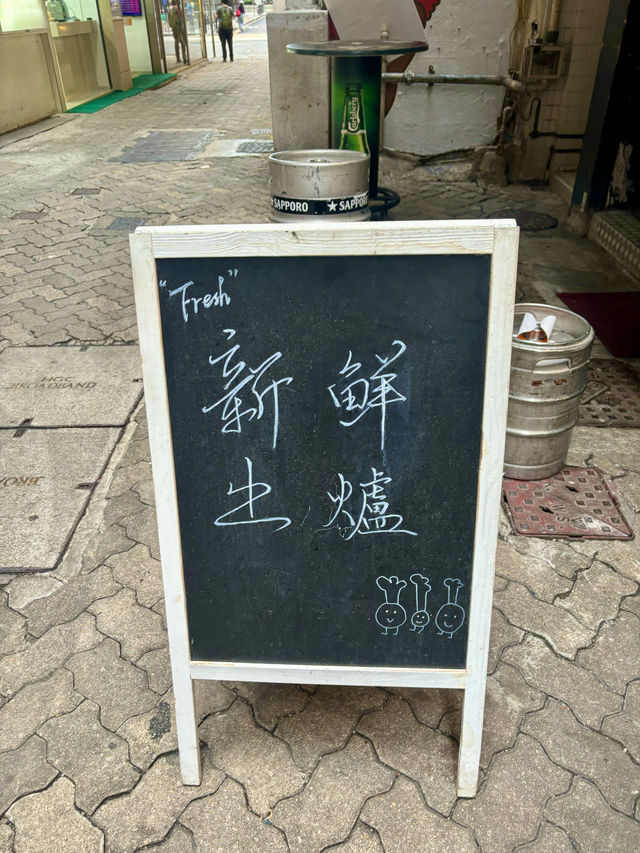 Carlsberg
SAPPORO ★ SAPPORO
"Fresh"
新鮮
出爐
HGC
BROADBAND